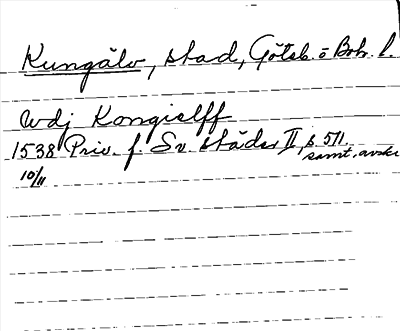 Kungälv, stad, Göteb. o Boh. l.
wdj Kongielff
1538 Priv. f. Sv. städer II, s. 571.
samt. avskr
10/11